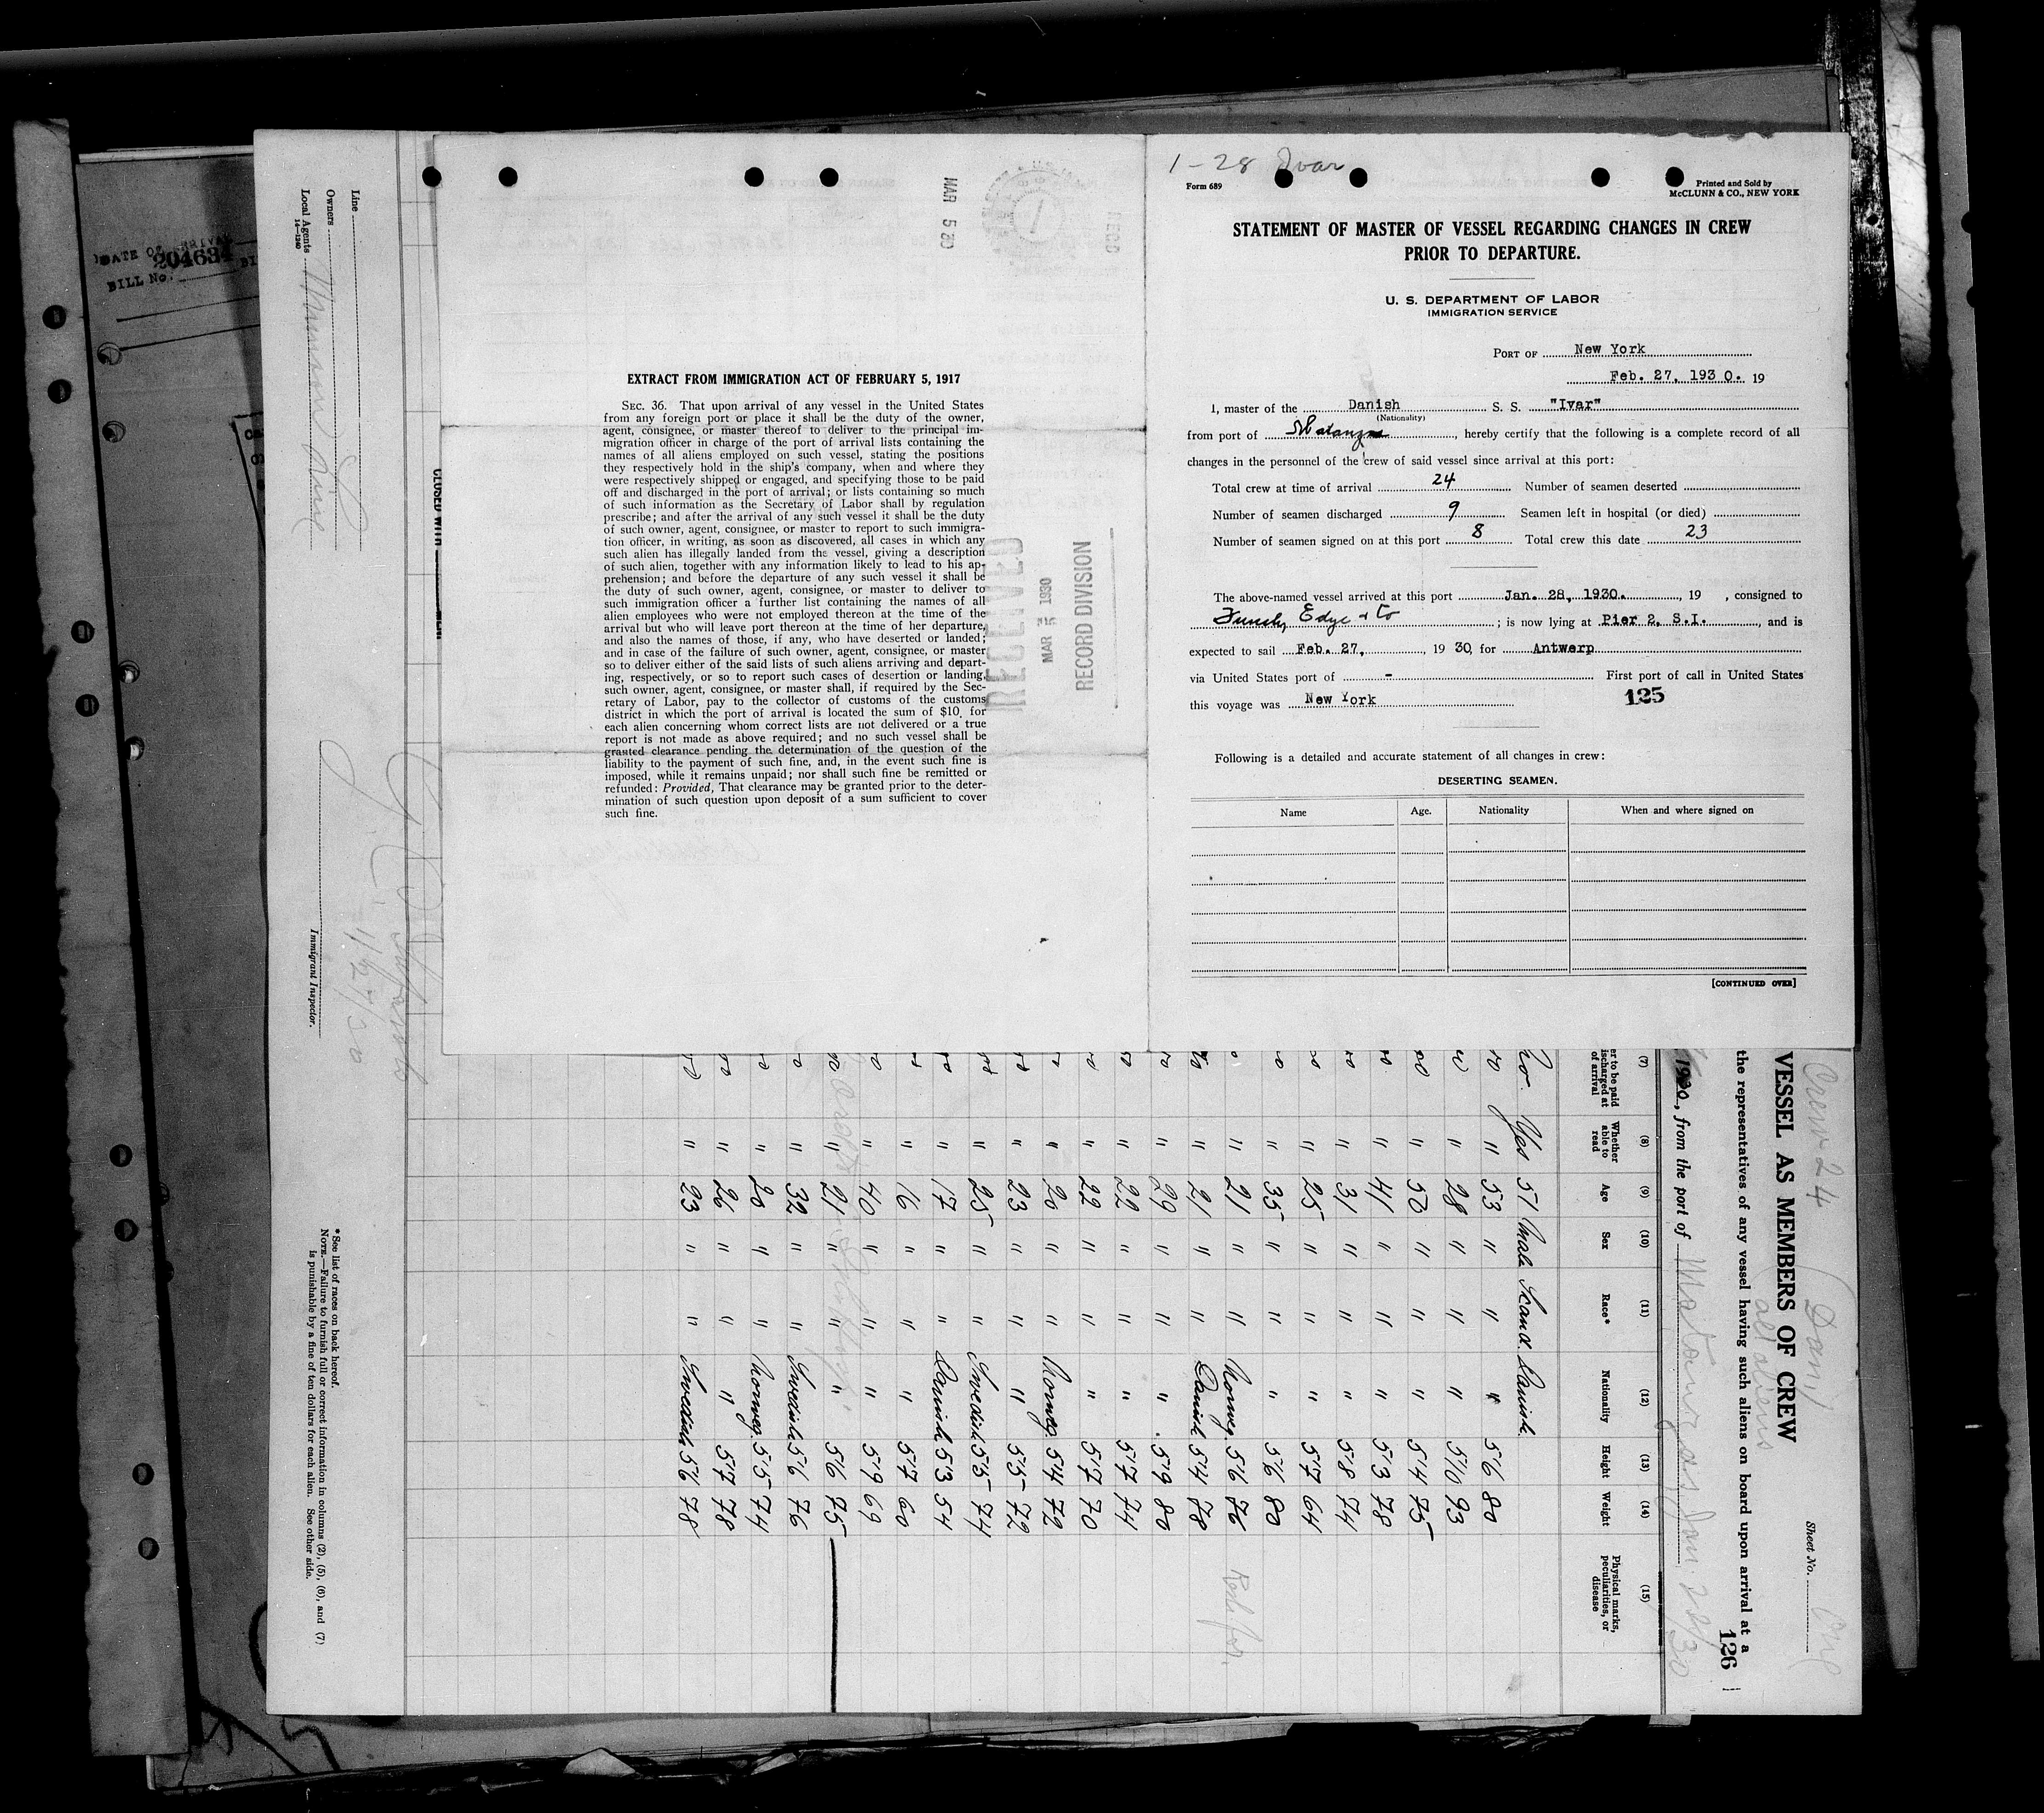 DATE OF ARRIVAL
204634
BILL No.
1-28 Ivar
Form 689
Printed and Sold by
McCLUNN & CO., NEW YORK
STATEMENT OF MASTER OF VESSEL REGARDING CHANGES IN CREW
PRIOR TO DEPARTURE.
U. S. DEPARTMENT OF LABOR
IMMIGRATION SERVICE
PORT OF New York
Feb. 27, 1930. 19
I, master of the Danish S. S. "Ivar"
(Nationality)
from port of Matanzas, hereby certify that the following is a complete record of all
changes in the personnel of the crew of said vessel since arrival at this port:
Total crew at time of arrival 24 Number of seamen deserted
Number of seamen discharged 9 Seamen left in hospital (or died)
Number of seamen signed on at this port 8 Total crew this date 23
The above-named vessel arrived at this port Jan. 28, 1930. , 19 , consigned to
Funch, Edye & Co ; is now lying at Pier 2, S.I. , and is
expected to sail Feb. 27, , 19 30, for Antwerp
via United States port of - First port of call in United States
this voyage was New York
125
Following is a detailed and accurate statement of all changes in crew:
DESERTING SEAMEN.
Name Age. Nationality When and where signed on
[CONTINUED OVER]
MAR 5 30
REC'D
EXTRACT FROM IMMIGRATION ACT OF FEBRUARY 5, 1917
SEC. 36. That upon arrival of any vessel in the United States
from any foreign port or place it shall be the duty of the owner,
agent, consignee, or master thereof to deliver to the principal im-
migration officer in charge of the port of arrival lists containing the
names of all aliens employed on such vessel, stating the positions
they respectively hold in the ship's company, when and where they
were respectively shipped or engaged, and specifying those to be paid
off and discharged in the port of arrival; or lists containing so much
of such information as the Secretary of Labor shall by regulation
prescribe; and after the arrival of any such vessel it shall be the duty
of such owner, agent, consignee, or master to report to such immigra-
tion officer, in writing, as soon as discovered, all cases in which any
such alien has illegally landed from the vessel, giving a description
of such alien, together with any information likely to lead to his ap-
prehension; and before the departure of any such vessel it shall be
the duty of such owner, agent, consignee, or master to deliver to
such immigration officer a further list containing the names of all
alien employees who were not employed thereon at the time of the
arrival but who will leave port thereon at the time of her departure,
and also the names of those, if any, who have deserted or landed;
and in case of the failure of such owner, agent, consignee, or master
so to deliver either of the said lists of such aliens arriving and depart-
ing, respectively, or so to report such cases of desertion or landing,
such owner, agent, consignee, or master shall, if required by the Sec-
retary of Labor, pay to the collector of customs of the customs
district in which the port of arrival is located the sum of $10 for
each alien concerning whom correct lists are not delivered or a true
report is not made as above required; and no such vessel shall be
granted clearance pending the determination of the question of the
liability to the payment of such fine, and, in the event such fine is
imposed, while it remains unpaid; nor shall such fine be remitted or
refunded: Provided, That clearance may be granted prior to the deter-
mination of such question upon deposit of a sum sufficient to cover
such fine.
RECEIVED
MAR 5 1930
RECORD DIVISION
Sheet No. One
Crew 24 (Dam)
all aliens
VESSEL AS MEMBERS OF CREW
the representatives of any vessel having such aliens on board upon arrival at a
126
1930, from the port of Matanzas Jan. 22/30
(7) (8) (9) (10) (11) (12) (13) (14) (15)
er to be paid
ischarged at
of arrival
Whether
able to
read
Age
Sex
Race*
Nationality
Height
Weight
Physical marks,
peculiarities, or
disease
No. Yes 51 Male Scand. Danish
" 53 " " " 56 80
" 28 " " " 510 93
" 50 " " " 54 75
" 41 " " " 53 78
" 31 " " " 58 74
" 25 " " " 57 64
" 35 " " " 56 80
" 21 " " Norweg. 56 76
" 21 " " Danish 54 78
" 29 " " " 59 80
" 22 " " " 57 74
" 22 " " " 57 70
" 20 " " Norweg. 54 72
" 23 " " " 55 72
" 25 " " Swedish 55 74
" 17 " " Danish 53 54
" 16 " " " 57 60
" 40 " " " 59 69
" 21 " " " 56 75
" 32 " " Swedish 56 76
" 20 " " Norweg. 55 74
" 26 " " " 57 78
" 23 " " Swedish 56 78
CLOSED WITH
Line
Owners
Local Agents Munson Line
14-1240
1/27/30
Immigrant Inspector.
*See list of races on back hereof.
NOTE.—Failure to furnish full or correct information in columns (2), (5), (6), and (7)
is punishable by a fine of ten dollars for each alien. See other side.